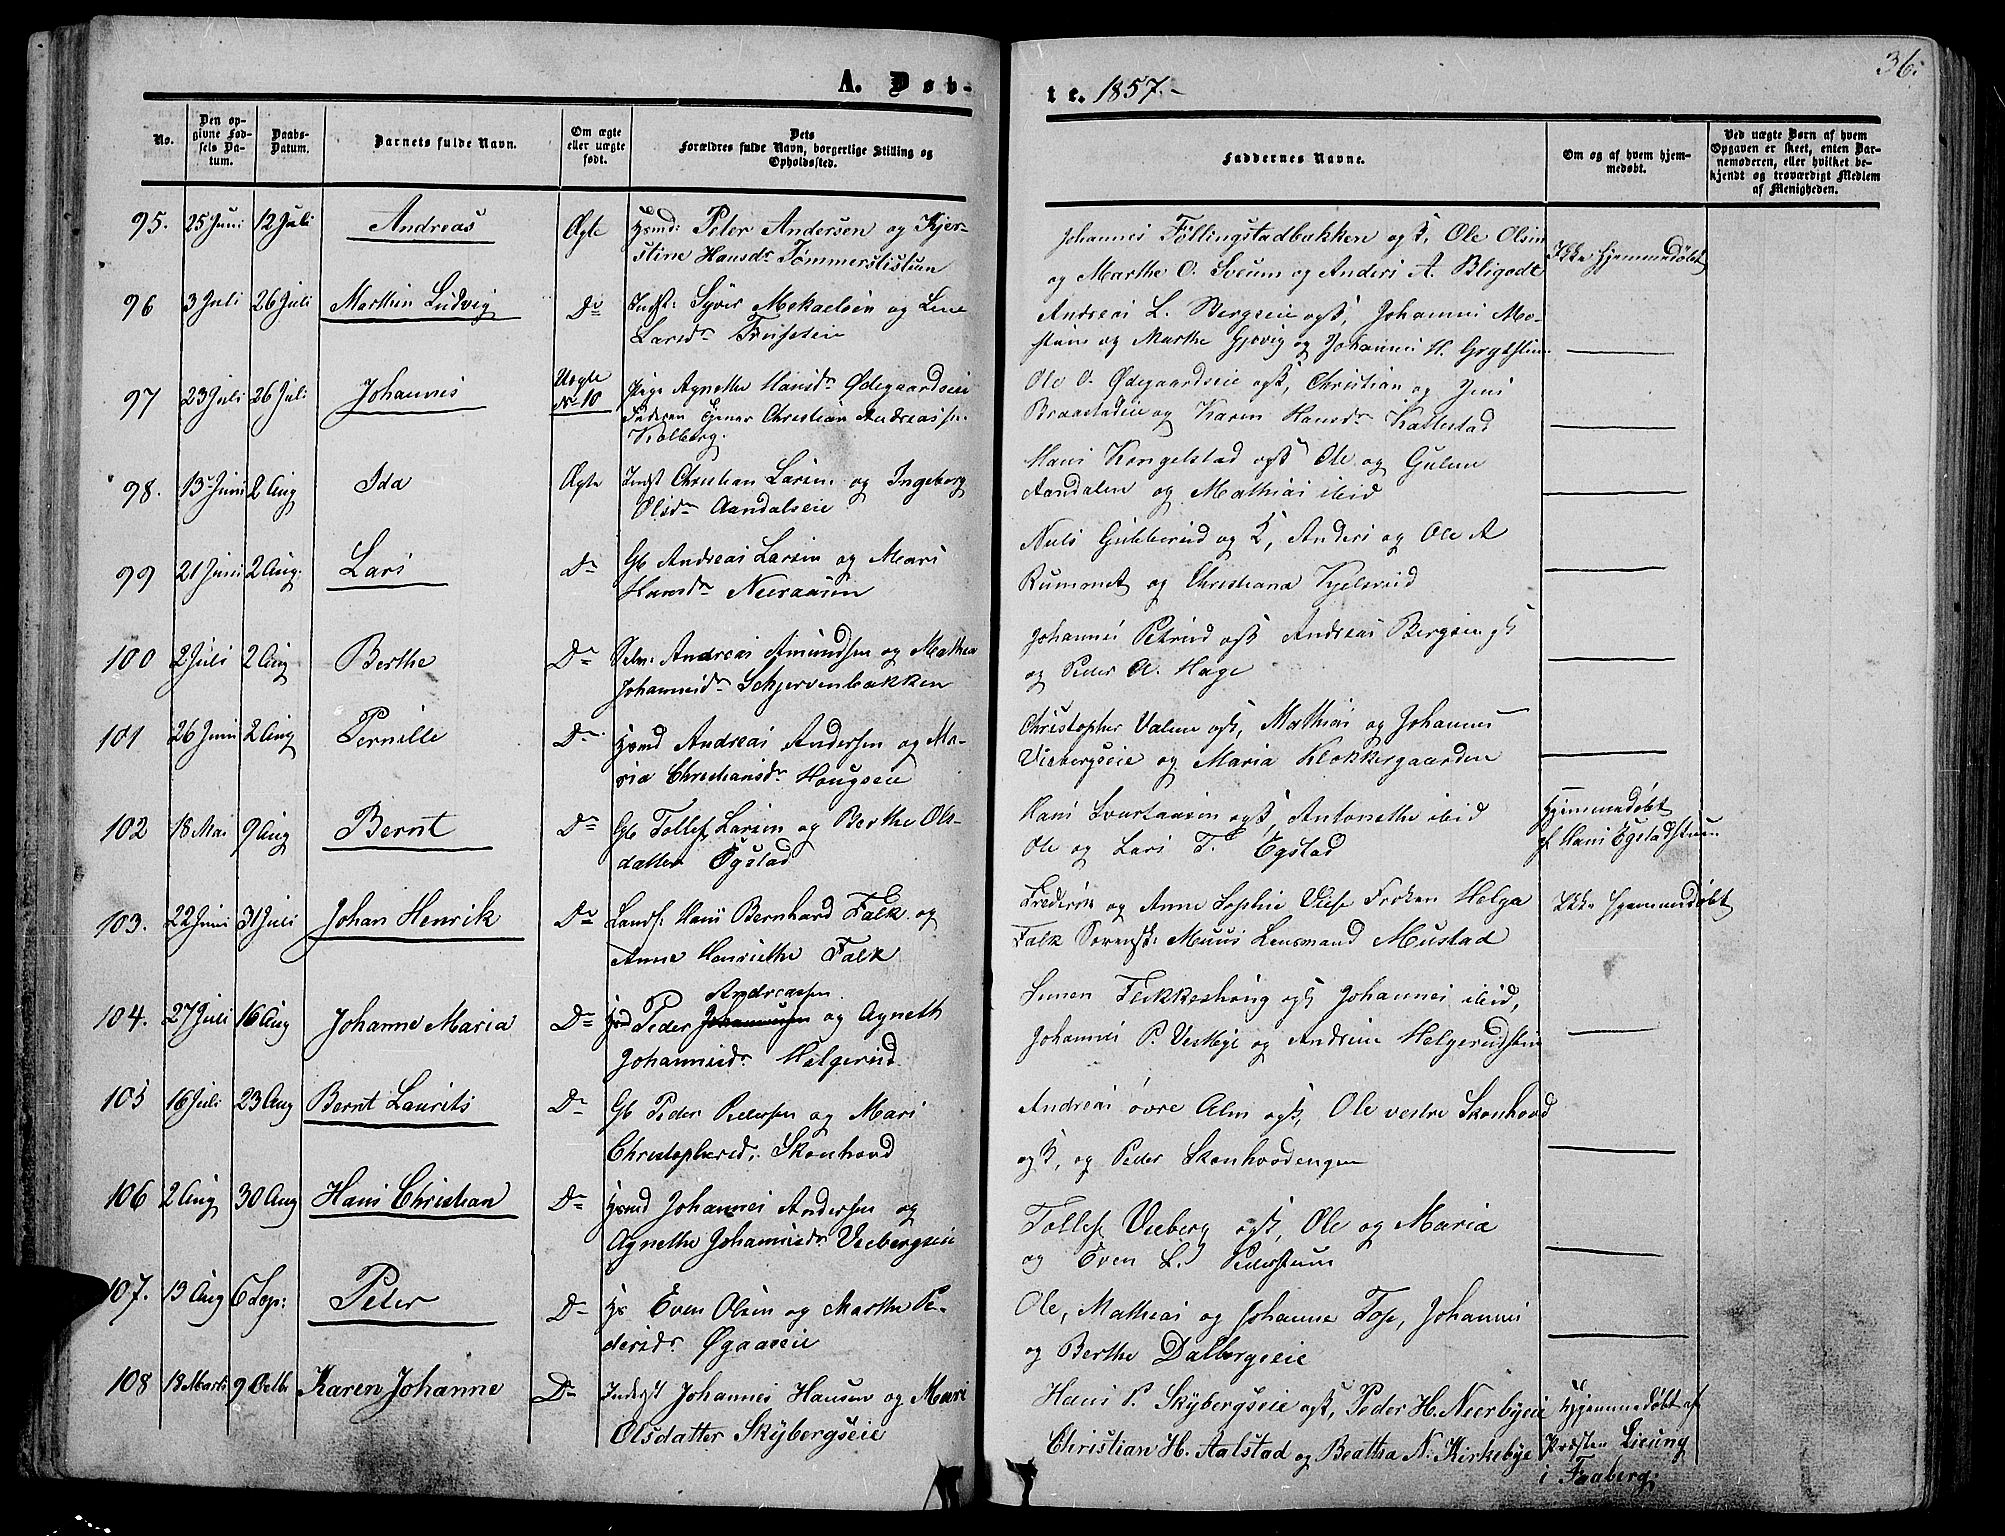 36.
A. Døb-
te. 1857.-
No.
Den op-
givne Fød-
sels Da-
tum.
Daabs-
Datum.
Barnets fulde Navn.
Om ægte
eller uægte
født.
Dets
Forældres fulde Navn, borgerlige Stilling og
Opholdssted.
Faddernes Navne.
Om og af hvem hjem-
medøbt.
Ved uægte Børn af hvem
Opgaven er skeet, enten Bar-
nemoderen, eller hvilket be-
kjendt og troværdigt Medlem
af Menigheden.
95. 25 Juni 12 Juli Andreas Ægte Hsmd: Peter Andersen og Kjer-
stine Hansdr Tømmerstistuen
Johannes Föllingstadbakken og K, Ole Olsen
og Marthe O. Sveum og Anders A. Bligodt
Ikke hjemmedøbt
96 3 Juli 26 Juli Martin Ludvig Do Indst: Syver Mekaelsen og Lene
Larsdr
Andreas L. Bergseie og K, Johannes
og Marthe Gjøvig og Johannes H.
97 23 Juli 26 Juli Johannes Uægte
No 10
Pige Agnethe Hansdr Ødegaardseie
Faderen Christian Andreassen
Kolberg.
Ole O. Ødegaardseie og K, Christian og Jens
Braastadeie og Karen Hansdr Kallestad
98. 13 Juni 2 Aug Ida Ægte Indst Christian Larsen og Ingeborg
Olsdr Aandalseie
Hans Kongelstad og K Ole og Gulena
Aandalen og Mathias ibid
99 21 Juni 2 Aug. Lars Do Gb Andreas Larsen og Mari
Hansdr Neeraasen
Nils Gubberud og K, Anders og Ole A
Rummet og Christiana Kjelsrud
100 2 Juli 2 Aug Berthe Do Selv: Andreas Amundsen og Mathea
Johannesdr Schjervenbakken
Johannes og K Andreas Bergseng K
og Peder A. Hage
101 26 Juni 2 Aug Pernille Do Hsmd Andreas Andersen og Ma-
ria Christiansdr Hougseie
Christopher og K, Mathias og Johannes
Viebergseie og Maria Klokkergaarden
102 18 Mai 9 Aug Bernt Do Gb Tollef Larsen og Berthe Ols-
datter Øgstad
Hans Svartaasen og K, Antonethe ibid
Ole og Lars T. Egstad
Hjemmedøbt
af Hans Egstadstuen
103. 22 Juni 31 Juli Johan Henrik Do Landh: Hans Bernhard Falk og
Anne Henriethe Falk
Frederik og Anne Sophie Frøken Helga
Falk Sorensk: Muus Lensmand Mustad
Ikke hjemmedøbt
104. 27 Juli 16 Aug Johanne Maria Do Hsd Peder Johannesen og Agneth
Andreassen
Johannesdr Helgerud
Simen Flikkeshoug og K Johannes ibid,
Johannes P. Vestbye og Andrine Helgerudstuen
105 16 Juli 23 Aug Bernt Laurits Do Gb Peder Pedersen og Mari
Christophersd. Skonhovd
Andreas øvre Alm og K, Ole vestre Skonhovd
og K, og Peder Skonhovdengen
106 2 Aug 30 Aug Hans Christian Do Hsmd Johannes Andersen og
Agnethe Johannesdr Viebergseie
Tollef Vieberg og K, Ole og Maria
og Even L. Pederstuen
107. 13 Aug 6 Sep: Peter Do Hs Even Olsen og Marthe Pe-
dersdr Øgaaseie
Ole, Mathias og Johanne Fop, Johannes
og Berthe Dalbergseie
108 13 Marts 9 Octbr Karen Johanne Do Inderst Johannes Hansen og Mari
Olsdatter Skybergseie
Hans P. Skybergseie og K, Peder H. Neerbyeie
Christian H. Aalstad og Beatha N. Kirkebye
Hjemmedøbt af
Præsten Lieung
i Faaberg.